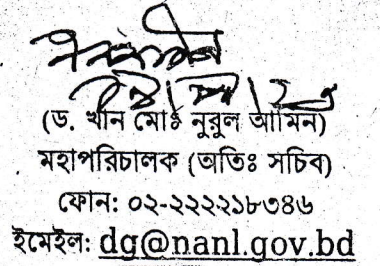 (ড. খান মোঃ নুরুল আমিন)
মহাপরিচালক (অতিঃ সচিব)
ফোন: ০২-২২২২১৮৩৪৬
ইমেইল: dg@nanl.gov.bd